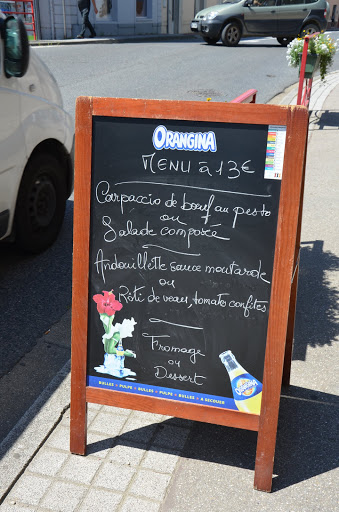 ORANGINA
MENU à 13€
Carpaccio de bœuf au pesto
ou
Salade composée
Andouillette sauce moutarde
ou
Rôti de veau, tomates confites
Fromage
ou
Dessert
BULLES - PULPE - BULLES - PULPE - BULLES - A SECOUER